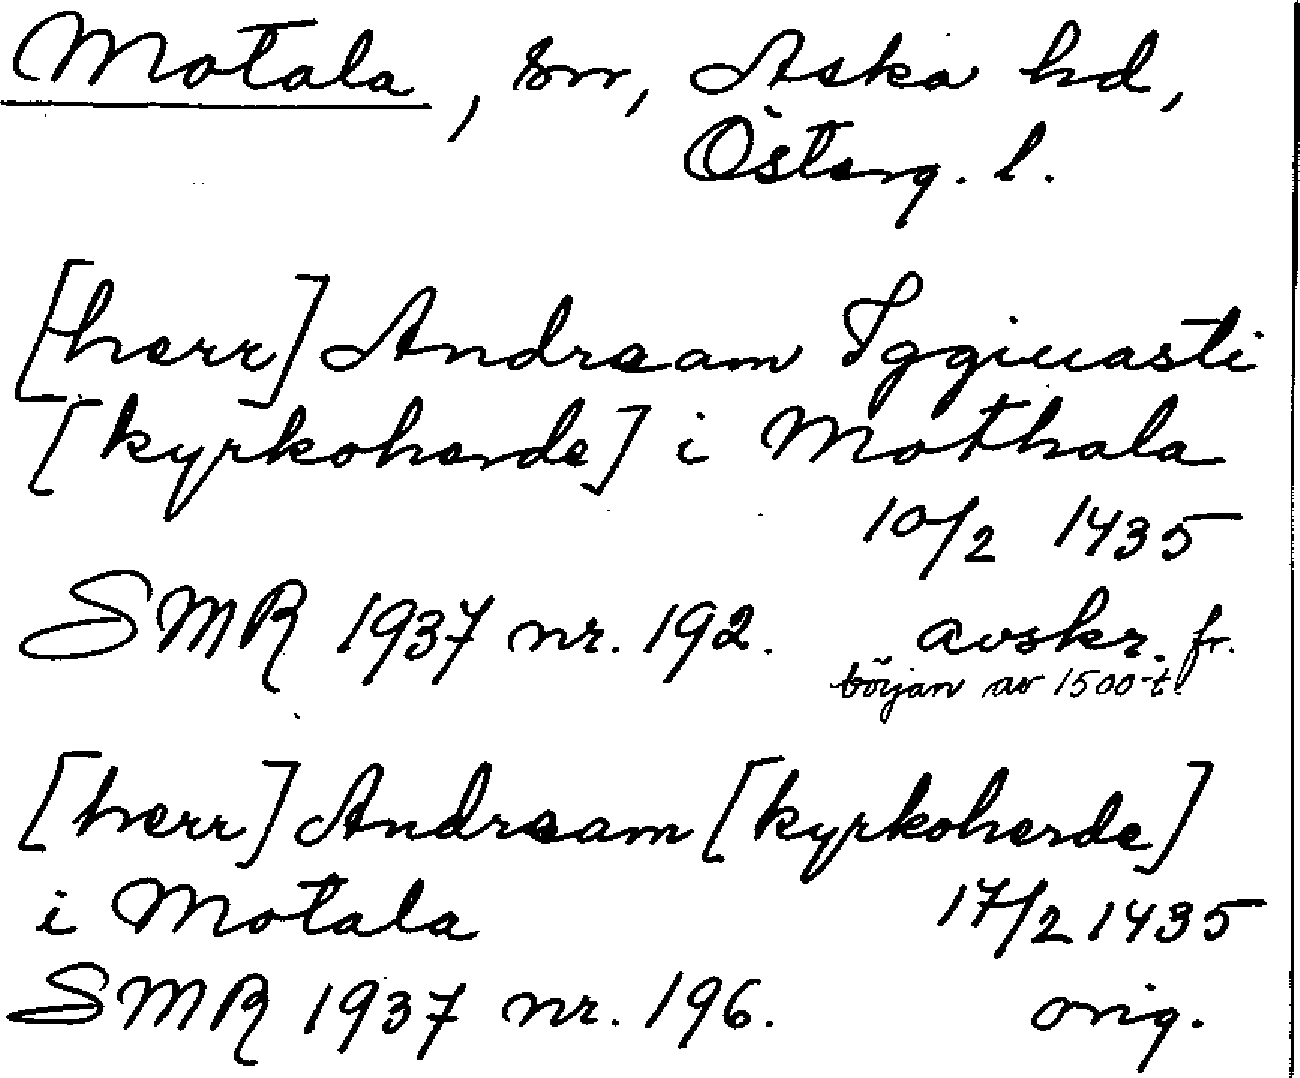 Motala, sn, Aska hd,
Österg. l.
[herr] Andream Iggiuasti
[kyrkoherde] i Mothala
10/2 1435
SMR 1937 nr. 192. avskr. fr.
början av 1500-t.
[herr] Andream [kyrkoherde]
i Motala 17/2 1435
SMR 1937 nr. 196. orig.